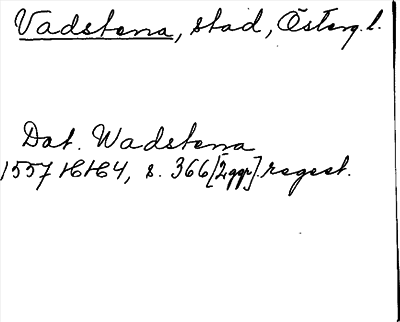 Vadstena, stad, Österg. l.
Dat. Wadstena
1557 16/6 H4, s. 366 [2 ggr]. regest.